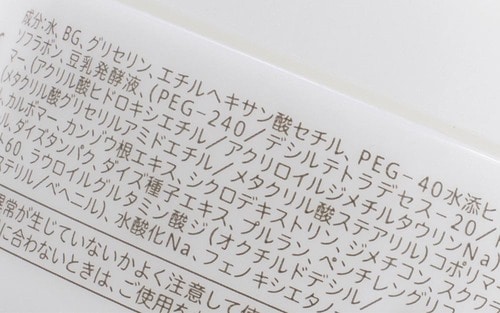 成分:水、BG、グリセリン、エチルヘキサン酸セチル、PEG-40水添ヒ
ソフラボン、豆乳発酵液、(PEG-240/デシルテトラデセス-20/
マー、(アクリル酸ヒドロキシエチル/アクリロイルジメチルタウリンNa)
(メタクリル酸グリセリルアミドエチル/メタクリル酸ステアリル)コポリマ
、カルボマー、カンゾウ根エキス、シクロデキストリン、ジメチコン、スクワラ
ル、ダイズタンパク、ダイズ種子エキス、プルラン、ペンチレングリコ
60、ラウロイルグルタミン酸ジ(オクチルドデシル/
ステリル/ベヘニル)、水酸化Na、フェノキシエタ
異常が生じていないかよく注意して使
に合わないときは、ご使用を